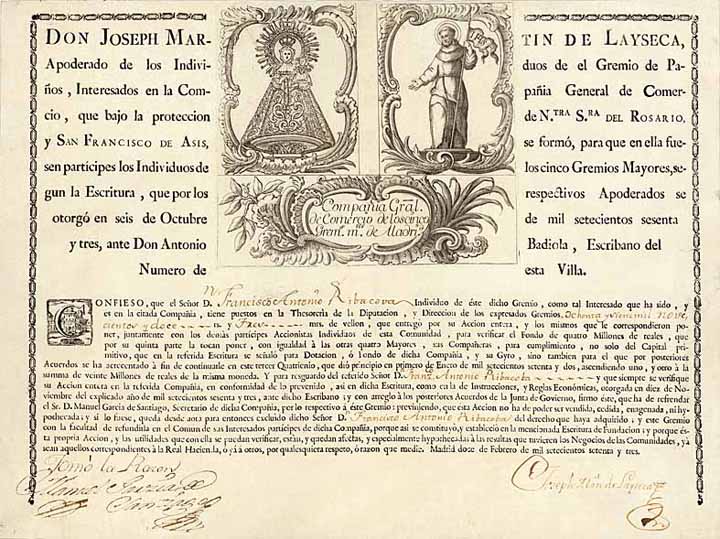 DON JOSEPH MAR- TIN DE LAYSECA,
Apoderado de los Indivi- duos de el Gremio de Pa-
ños, Interesados en la Com- pañia General de Comer-
cio, que bajo la proteccion de N.TRA S.RA DEL ROSARIO,
y SAN FRANCISCO DE ASIS, se formó, para que en ella fue-
sen partícipes los Individuos de los cinco Gremios Mayores, se-
gun la Escritura, que por los respectivos Apoderados se
otorgó en seis de Octubre de mil setecientos sesenta
y tres, ante Don Antonio Badiola, Escribano del
Numero de esta Villa.
Compañia Gral.
de Comercio de los cinco
Grem.s m.res de Madrid.
CONFIESO, que el Señor D. Francisco Antonio Ribacova Individuo de éste dicho Gremio, como tal Interesado que ha sido, y
es en la citada Compañia, tiene puestos en la Thesorería de la Diputacion, y Direccion de los expresados Gremios Ochenta y seis mil nove
cientos y doce rs. y Tres mrs. de vellon, que entregó por su Accion entera, y los mismos que le correspondieron po-
ner, juntamente con los demás partícipes Accionistas Individuos de esta Comunidad, para verificar el Fondo de quatro Millones de reales, que
por su quinta parte la tocan poner, con igualdad à las otras quatro Mayores, sus Compañeras, para cumplimiento, no solo del Capital
primitivo, que en la referida Escritura se señaló para Dotacion, ó fondo de dicha Compañia, y su Gyro, sino tambien para el que por posteriores
Acuerdos se ha acrecentado à fin de continuarle en este tercer Quatrienio, que dió principio en primero de Enero de mil setecientos setenta y dos, ascendiendo uno, y otro à la
summa de veinte Millones de reales de la misma moneda. Y para resguardo del referido Señor D. Franz.co Antonio Ribacoba y que siempre se verifique
su Accion entera en la referida Compañia, en conformidad de lo prevenido, asi en dicha Escritura, como en la de Instrucciones, y Reglas Económicas, otorgada en diez de No-
viembre del explicado año de mil setecientos sesenta y tres, ante dicho Escribano; y con arreglo à los posteriores Acuerdos de la Junta de Govierno, firmo éste, que ha de refrendar
el Sr. D. Manuel García de Santiago, Secretario de dicha Compañia, por lo respectivo à éste Gremio; previniendo, que esta Accion no ha de poder ser vendida, cedida, enagenada, ni hy-
pothecada; y si lo fuese, queda desde aora para entonces excluído dicho Señor D. Francisco Antonio Ribacoba del derecho que haya adquirido, y este Gremio
con la facultad de refundirla en el Comun de sus Interesados partícipes de dicha Compañia, porque asi se constituyó, y estableció en la mencionada Escritura de Fundacion; y porque és-
ta propria Accion, y las utilidades que con ella se puedan verificar, están, y quedan afectas, y especialmente hypothecadas à las resultas que tuvieren los Negocios de las Comunidades, yà
sean aquellos correspondientes à la Real Hacienda, ó yà à otros, por qualquiera respeto, ó razon que medie. Madrid doce de Febrero de mil setecientos setenta y tres.
Tomó la Razon
Manuel Garcia de
Santiago
Joseph Mrn. de Layseca